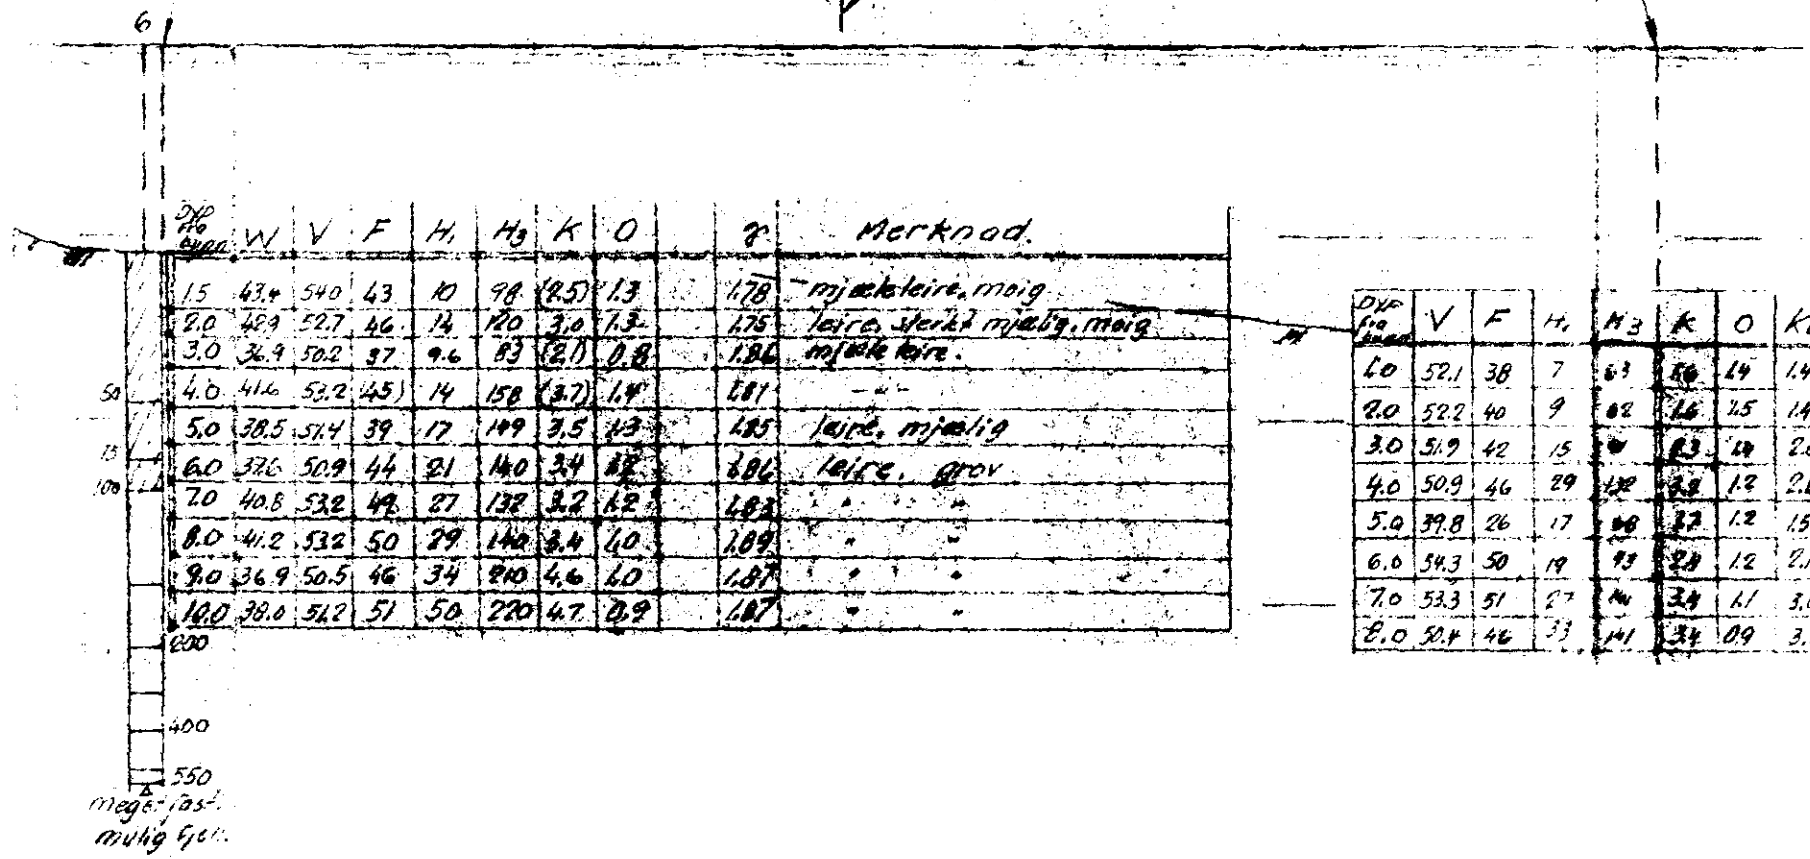 6
Dyp fra W V F H₁ H₃ K O γ Merknad.
1.5 43.4 54.0 43 10 98 (2.5) 1.3 1.78 mjæleleire, moig
2.0 42.9 52.7 46 14 120 3.0 1.3 1.75 leire, sterkt mjælig, moig
3.0 36.9 50.2 37 9.6 83 (2.1) 0.8 1.86 mjæleleire.
4.0 41.6 53.2 (45) 14 158 (3.7) 1.4 1.81 -"-
5.0 38.5 51.4 39 17 149 3.5 1.3 1.85 leire, mjælig
6.0 37.6 50.9 44 21 140 3.4 1.2 1.86 leire, grov
7.0 40.8 53.2 49 27 132 3.2 1.2 1.83 " "
8.0 41.2 53.2 50 29 140 3.4 1.0 1.89 " "
9.0 36.9 50.5 46 34 210 4.6 1.0 1.87 " "
10.0 38.0 51.2 51 50 220 4.7 0.9 1.87 " "
50
75
100
200
400
550
meget fast.
mulig fjell.
Dyp fra V F H₁ H₃ K O
1.0 52.1 38 7 63 1.6 1.4 1.4
2.0 52.2 40 9 62 1.6 1.5 1.4
3.0 51.9 42 15 2.3 1.4
4.0 50.9 46 29 132 1.2
5.0 39.8 26 17 68 1.7 1.2 1.5
6.0 54.3 50 19 93 1.2
7.0 53.3 51 27 3.4 1.1
8.0 50.4 46 33 141 3.4 0.9